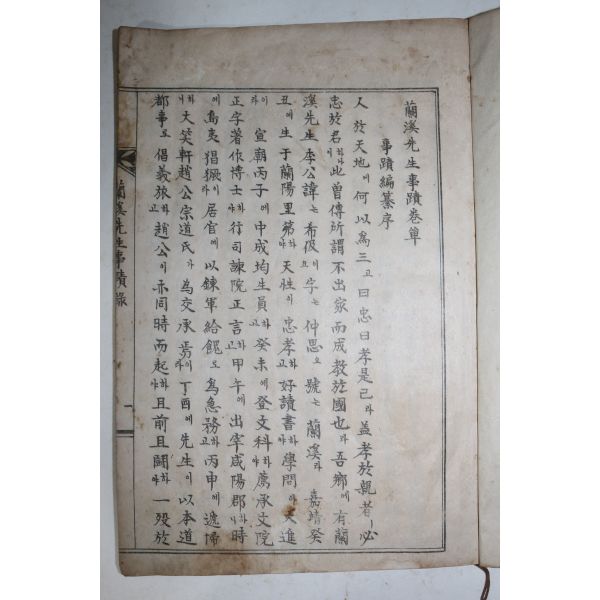 蘭溪先生事蹟卷單
事蹟編纂序
人於天地에何以爲三고曰忠曰孝是已라蓋孝於親者ㅣ必
忠於君하나니此曾傳所謂不出家而成敎於國也라吾鄕에有蘭
溪先生李公諱는希伋이오字는仲思오號는蘭溪라嘉靖癸
丑에生于蘭陽里第하야天性이忠孝하고好讀書하야學問이大進
이라宣廟丙子에中成均生員하고癸未에登文科하야薦承文院
正字著作博士하야行司諫院正言하고甲午에出宰咸陽郡하니時
에島夷猖獗이라居官에以鍊軍給餽로爲急務하고丙申에遞歸
하니大笑軒趙公宗道氏가爲交承焉이라丁酉에先生이以本道
都事로倡義旅하고趙公이亦同時而起하야且前且鬪하야一歿於
蘭溪先生事蹟錄
一